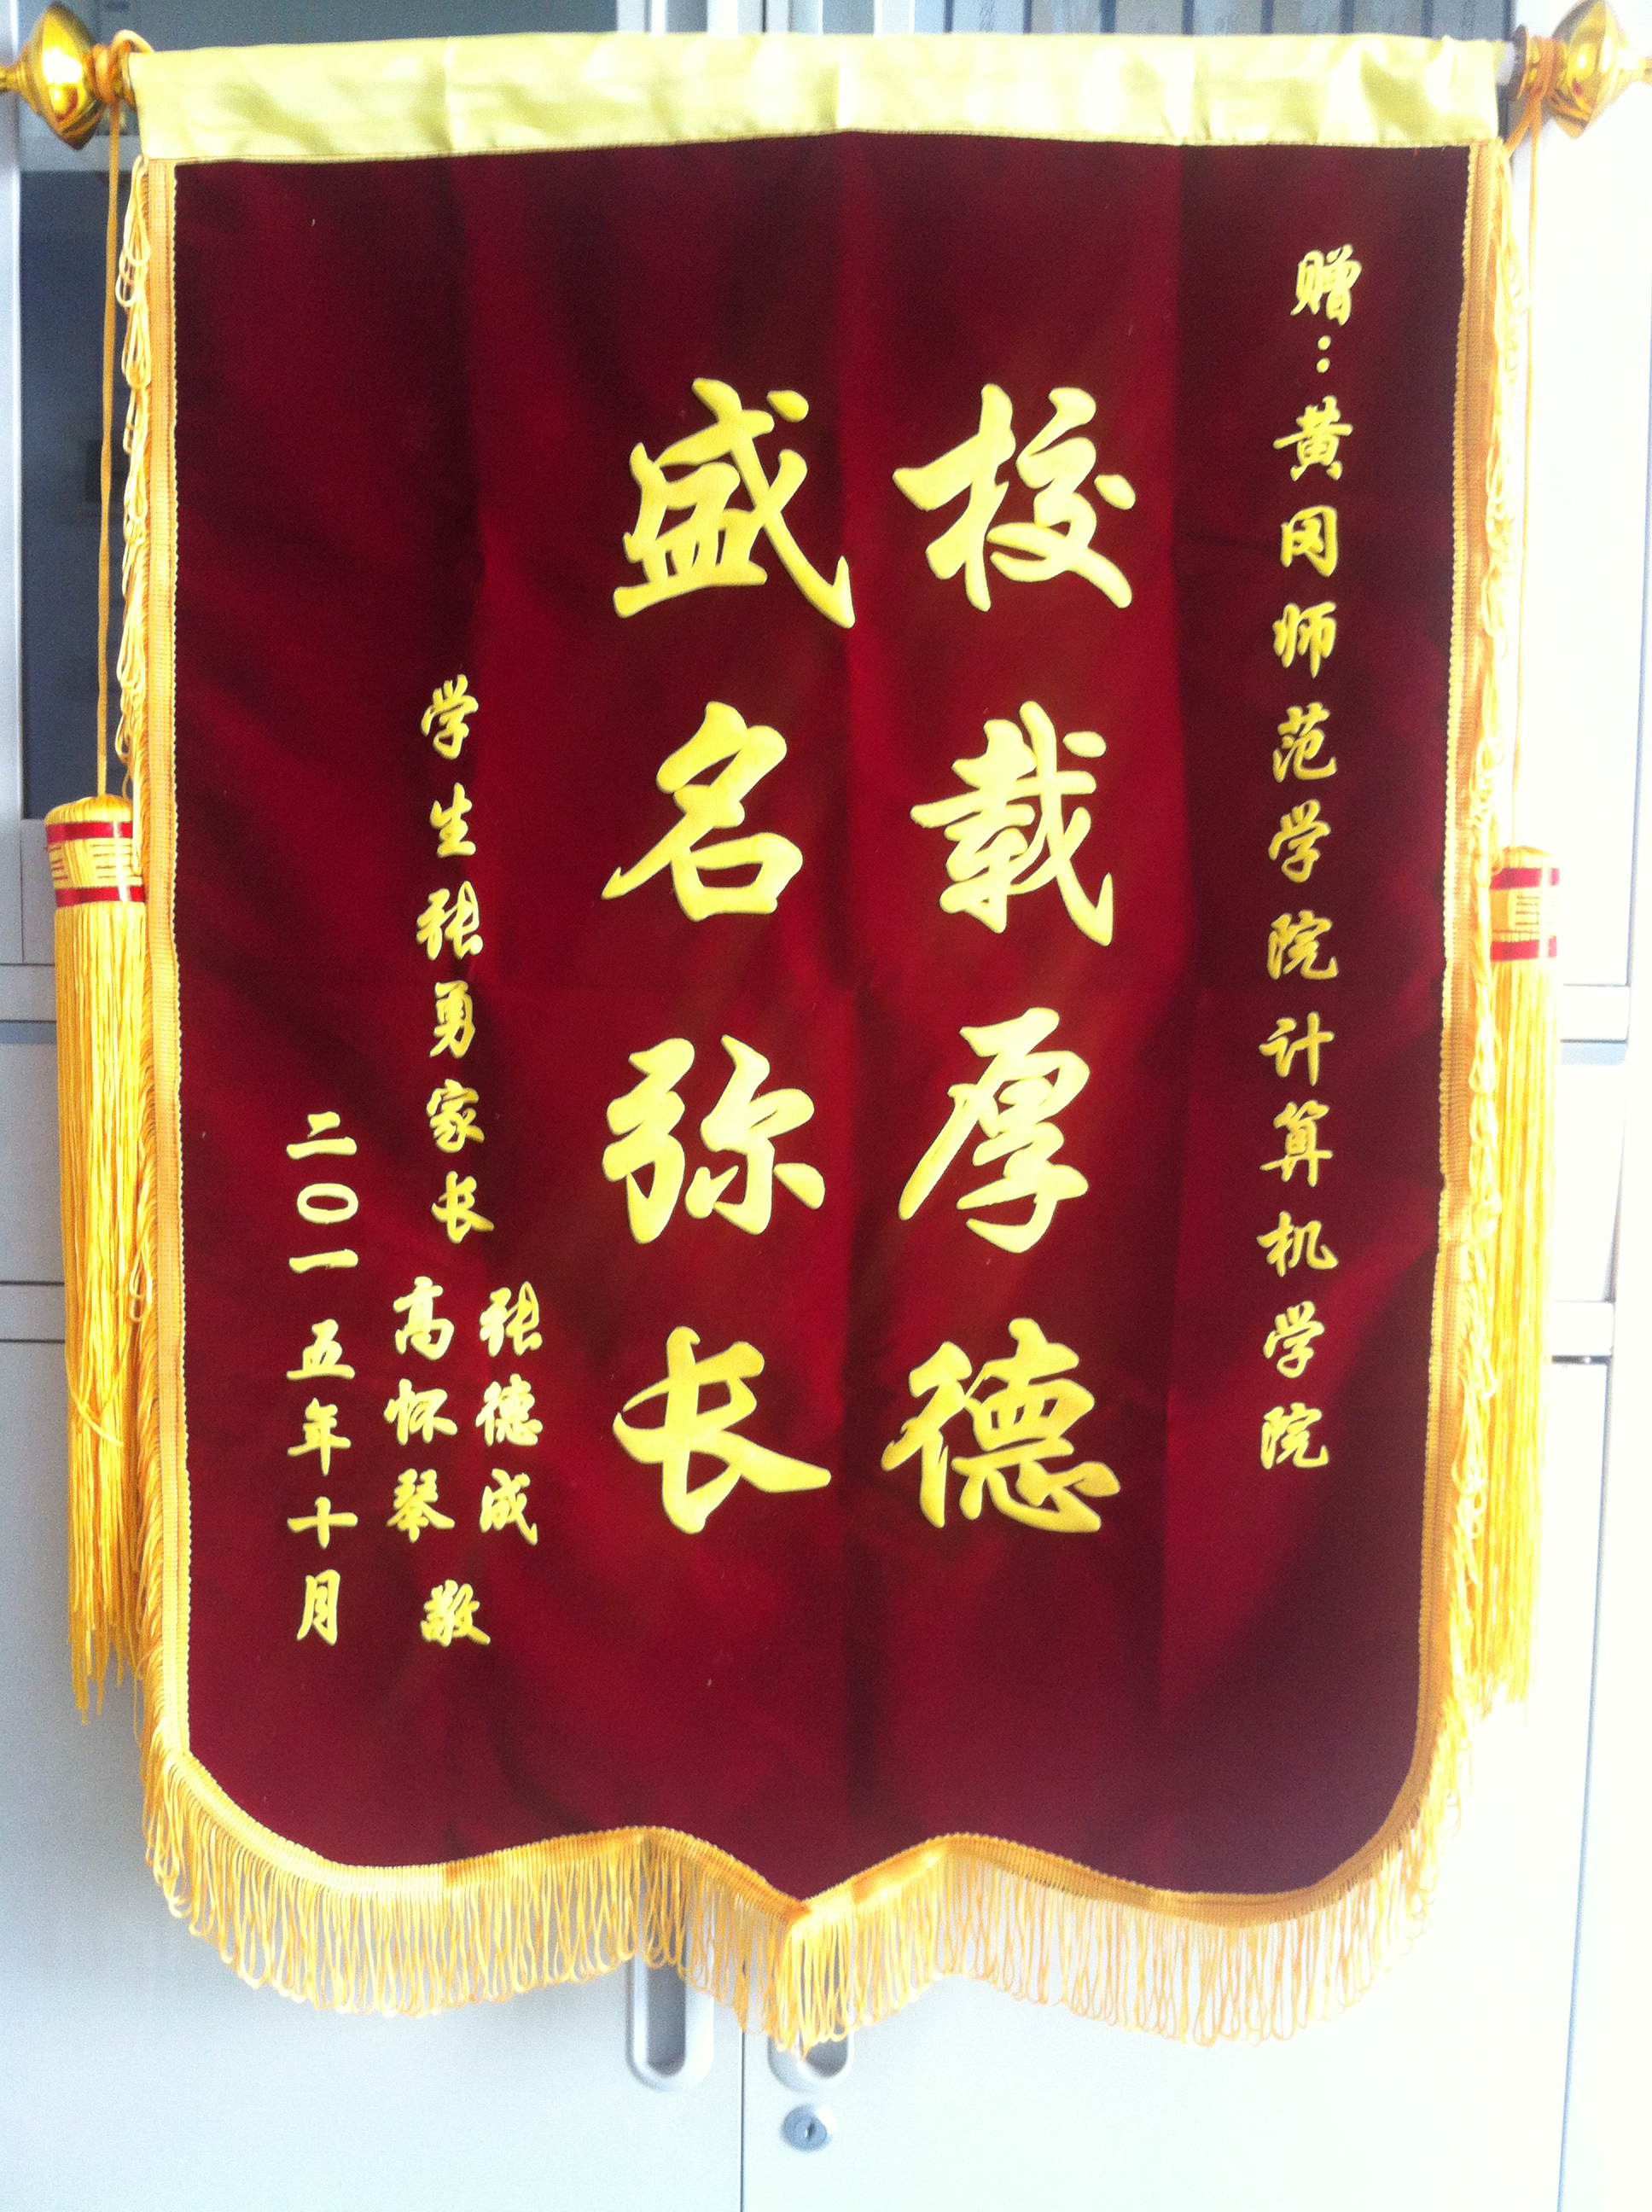 赠：黄冈师范学院计算机学院
校载厚德
盛名弥长
学生张勇家长
张德成
高怀琴
敬
二〇一五年十月